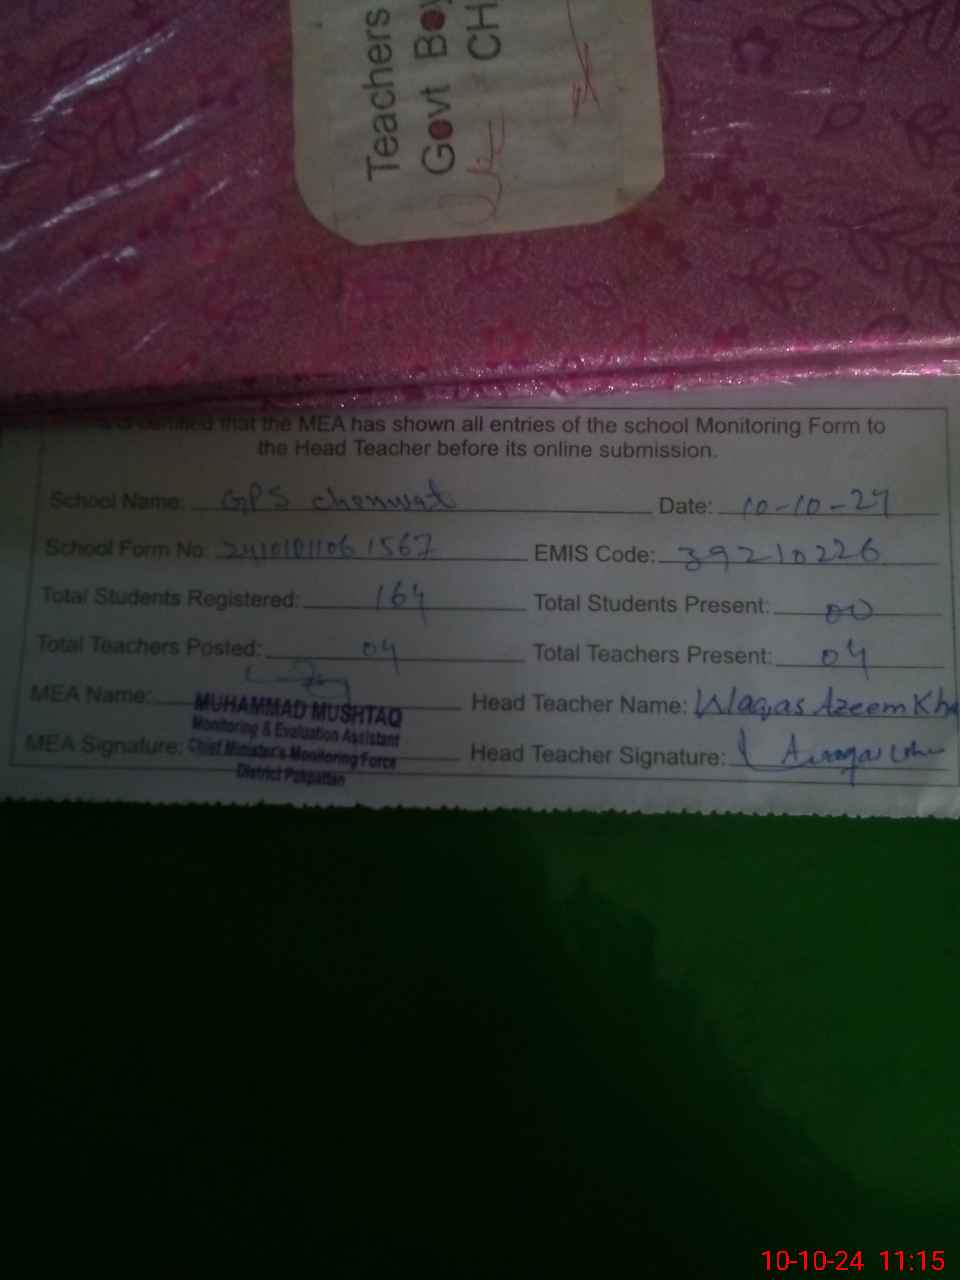 Teachers
Govt Boy
CH
is certified that the MEA has shown all entries of the school Monitoring Form to
the Head Teacher before its online submission.
School Name: GPS Date: 10-10-24
School Form No: EMIS Code: 39210226
Total Students Registered: 164 Total Students Present: 00
Total Teachers Posted: 04 Total Teachers Present: 04
MEA Name: MUHAMMAD MUSHTAQ Head Teacher Name: Waqas Azeem Kha
Monitoring & Evaluation Assistant
MEA Signature: Chief Minister's Monitoring Force Head Teacher Signature:
District Pakpattan
10-10-24 11:15